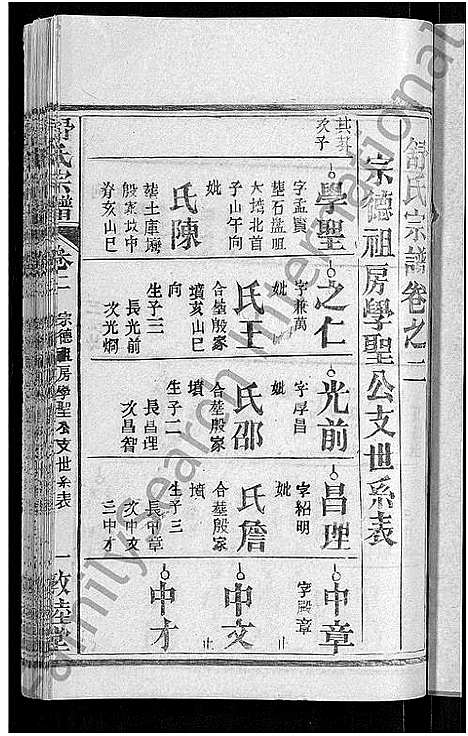 舒氏宗譜卷之二
宗德祖房學聖公支世系表
其芬
次子
學聖
字孟賢
葬石盤咀
大塆北首
子山午向
妣
氏陳
葬土庫塆
殷家坟中
脊亥山巳
向
之仁
字兼萬
妣
氏王
合葬殷家
墳亥山巳
生子二
長光前
次光燗
光前
字厚昌
妣
氏邵
合葬殷家
墳
生子二
長昌理
次昌智
昌理
字紹明
妣
氏詹
合葬殷家
墳
生子三
長中章
次中文
三中才
中章
字殿章
中文
中才
舒氏宗譜
卷二
宗德祖房學聖公支世系表
一
敦睦堂
Family Search International